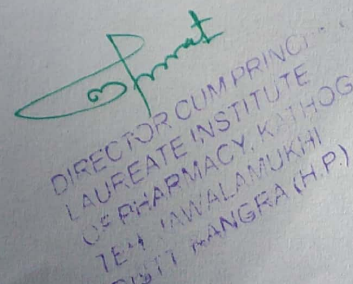 DIRECTOR CUM PRINCI
LAUREATE INSTITUTE
OF PHARMACY, KATHOG
TEH JAWALAMUKHI
DISTT KANGRA (H.P.)